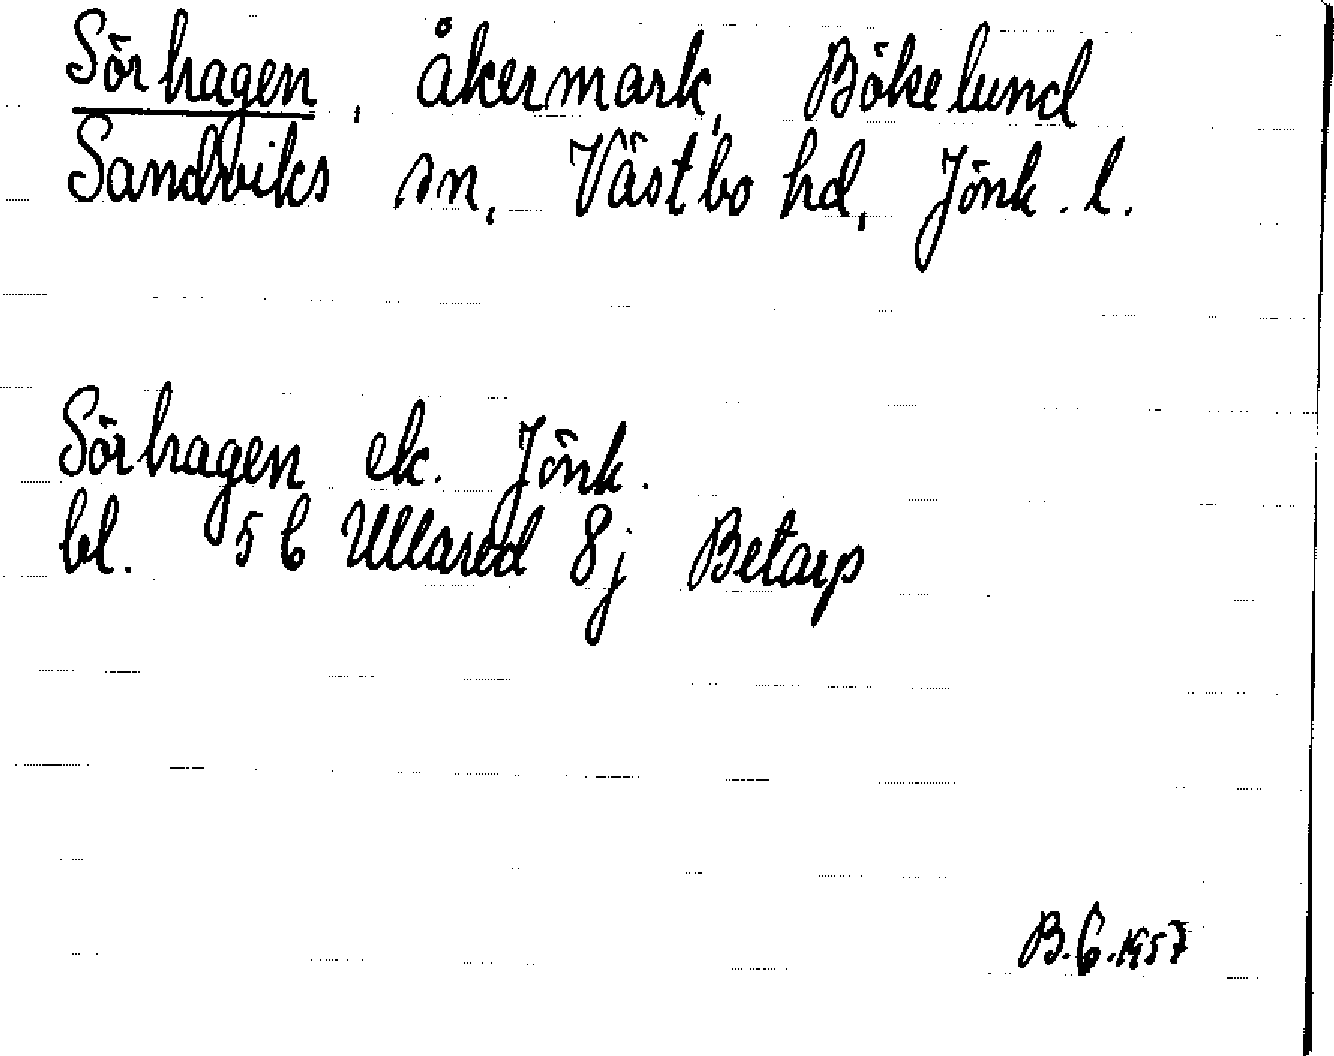 Sörhagen, åkermark, Bökelund
Sandviks sn, Västbo hd, Jönk. l.
Sörhagen ek. Jönk.
bl. 5 C Ullared 8j Betarp
B.G. 1957